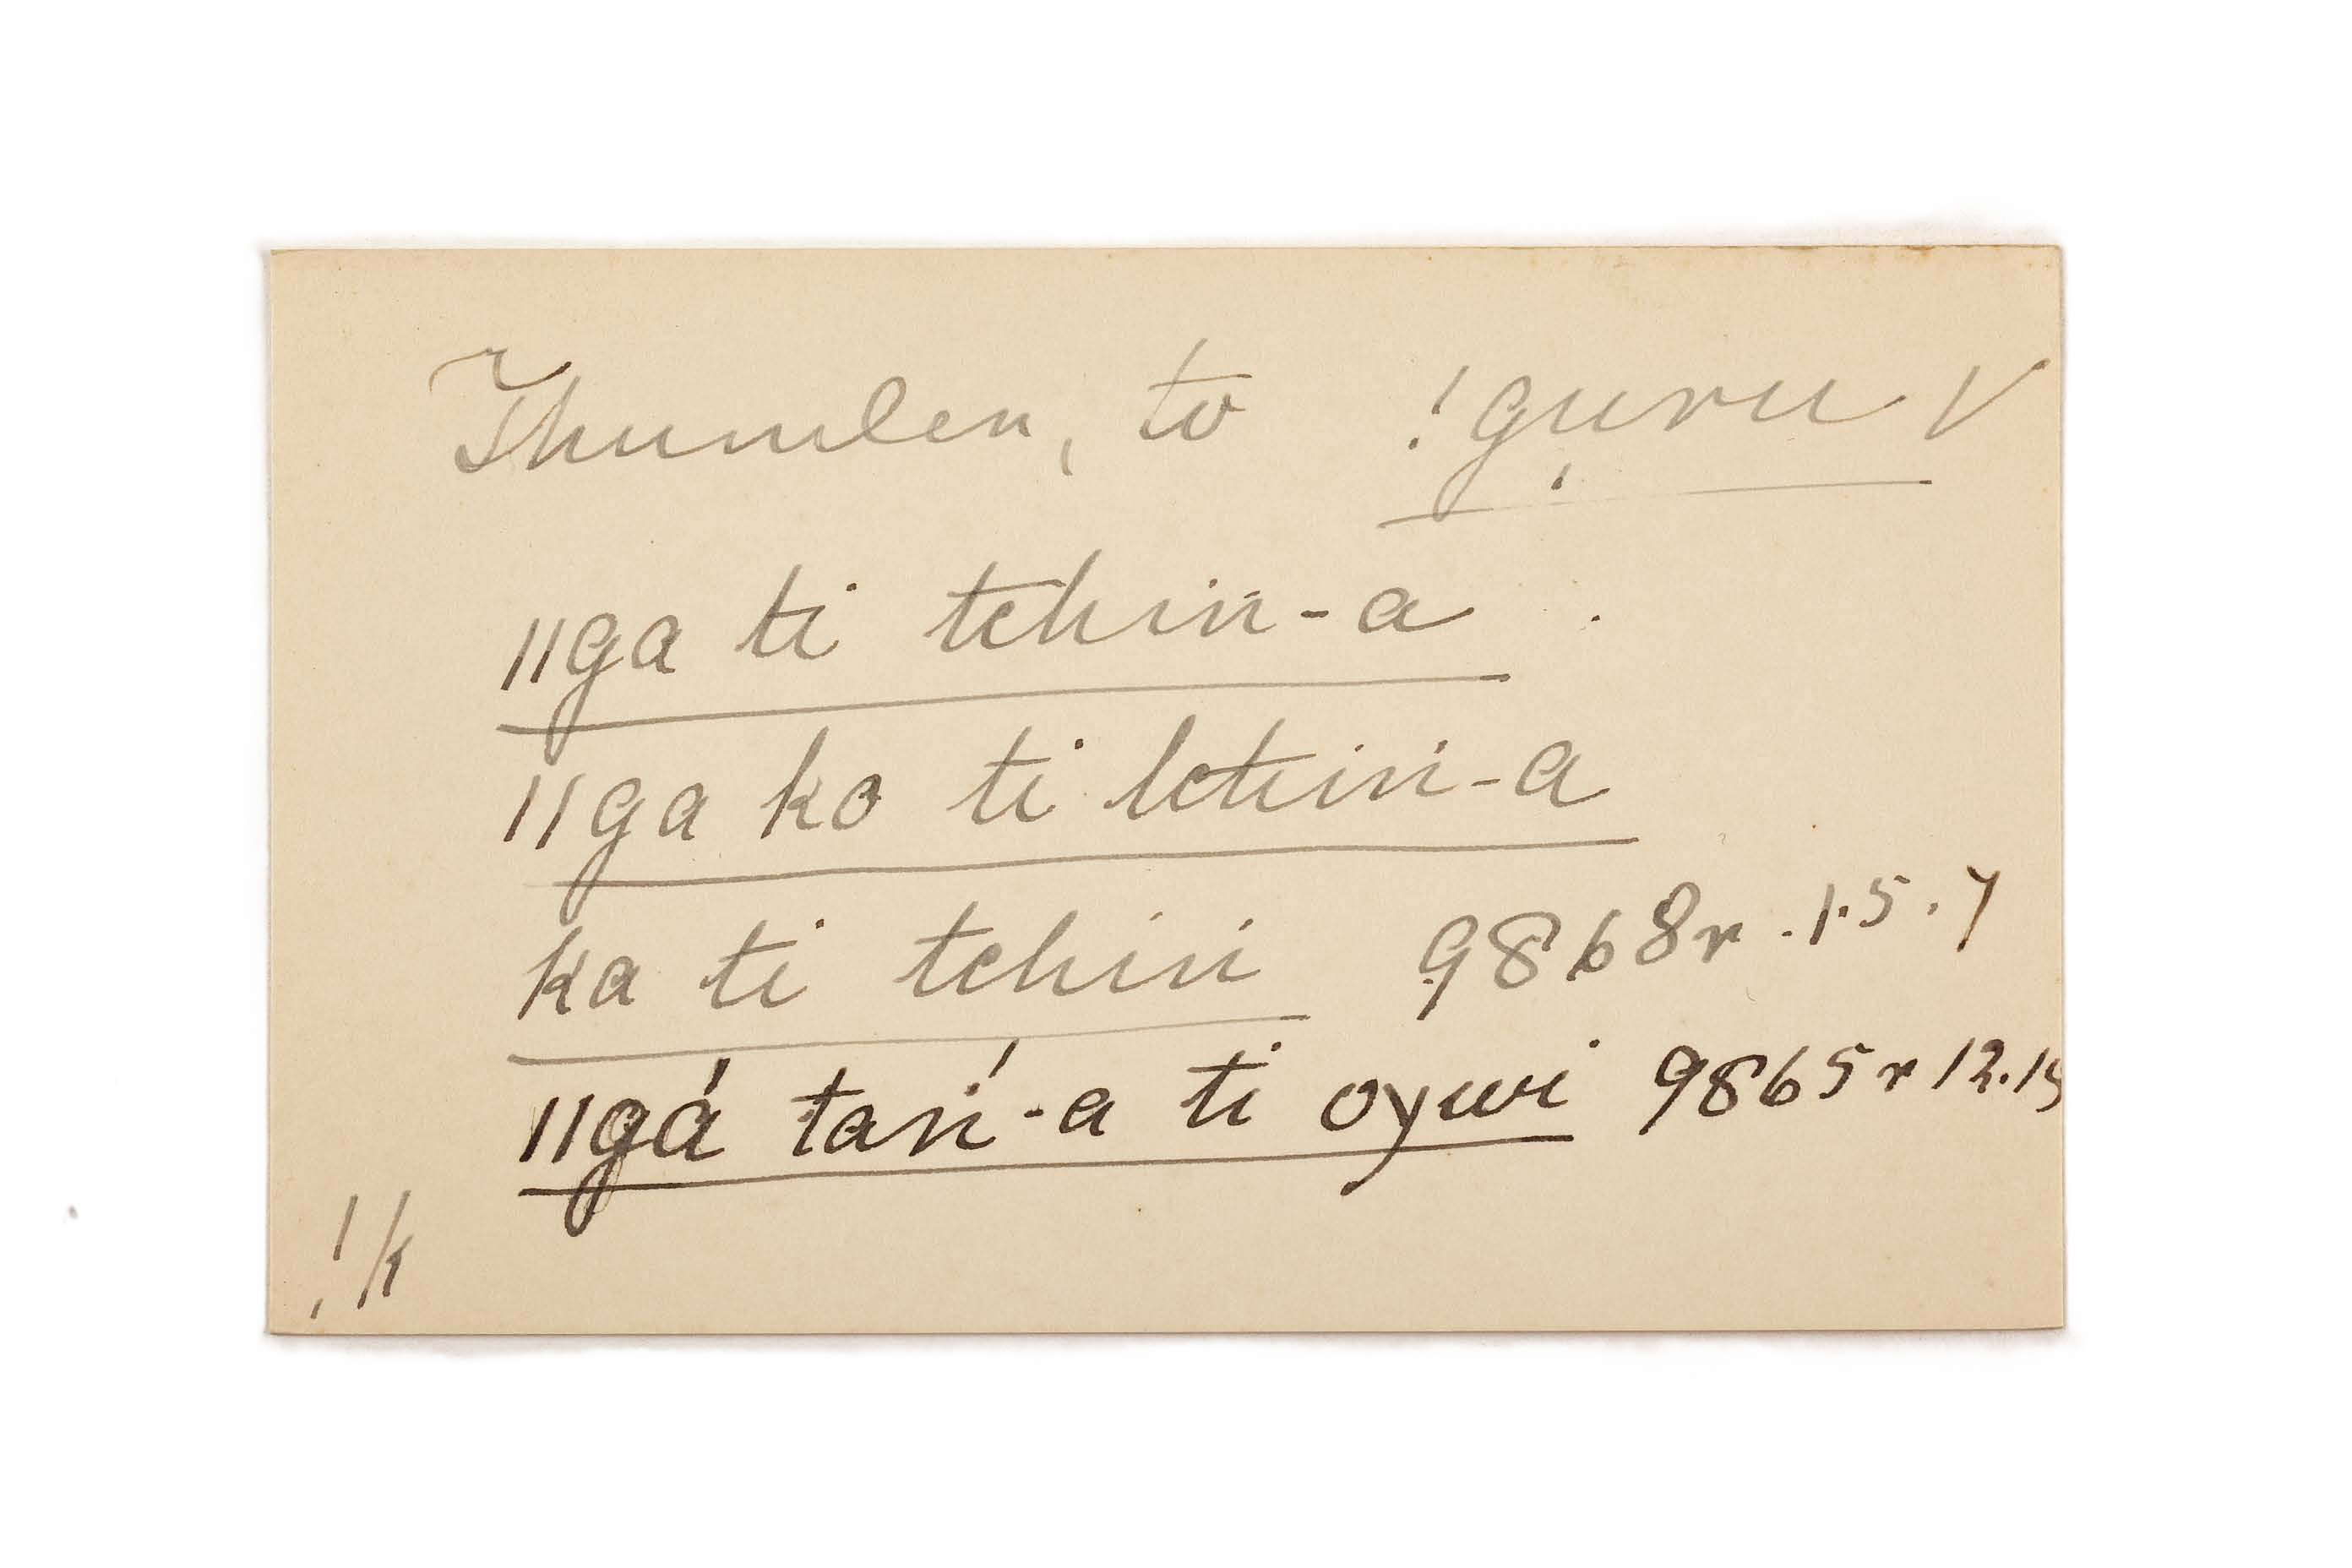 Thunder, to !gụru V
ǁga ti tchiṅ-a
ǁga ko ti tchiṅ-a
ka ti tchiṅ 9868r. 1.5.7
ǁgá taṅ́-a ti oywi 9865r 12.15
!k